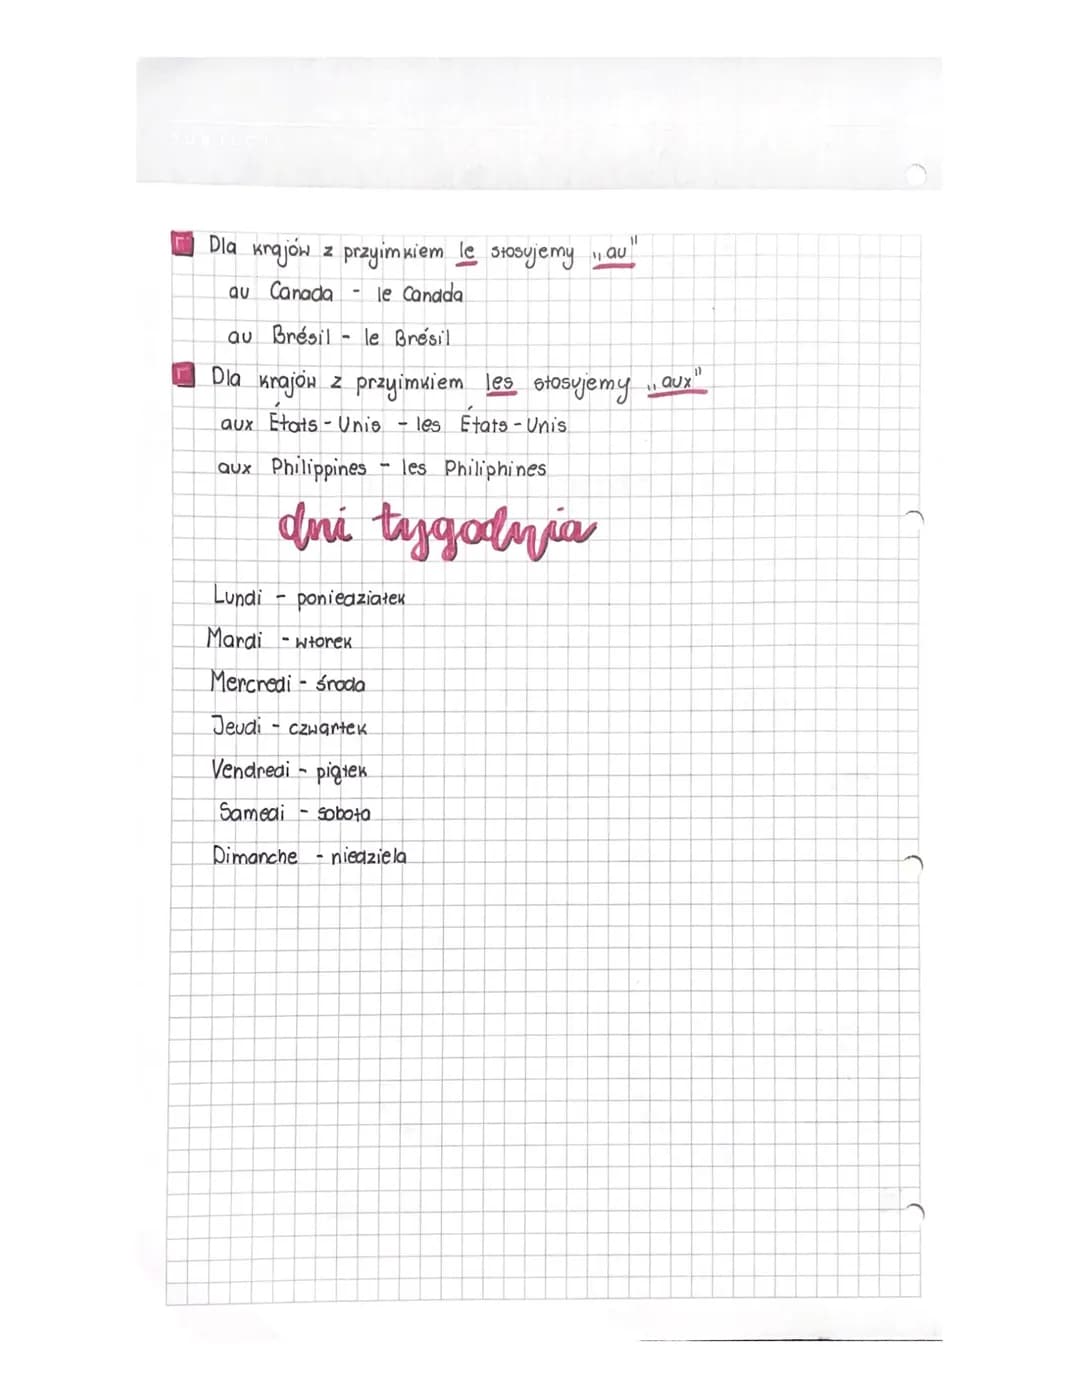 Dla krajów z przyimkiem le stosujemy „au"
au Canada - le Canada
au Brésil - le Brésil
Dla krajów z przyimkiem les stosujemy „aux"
aux États-Unis - les États-Unis
aux Philippines - les Philiphines
dni tygodnia
Lundi - poniedziałek
Mardi - wtorek
Mercredi - środa
Jeudi - czwartek
Vendredi - piątek
Samedi - sobota
Dimanche - niedziela